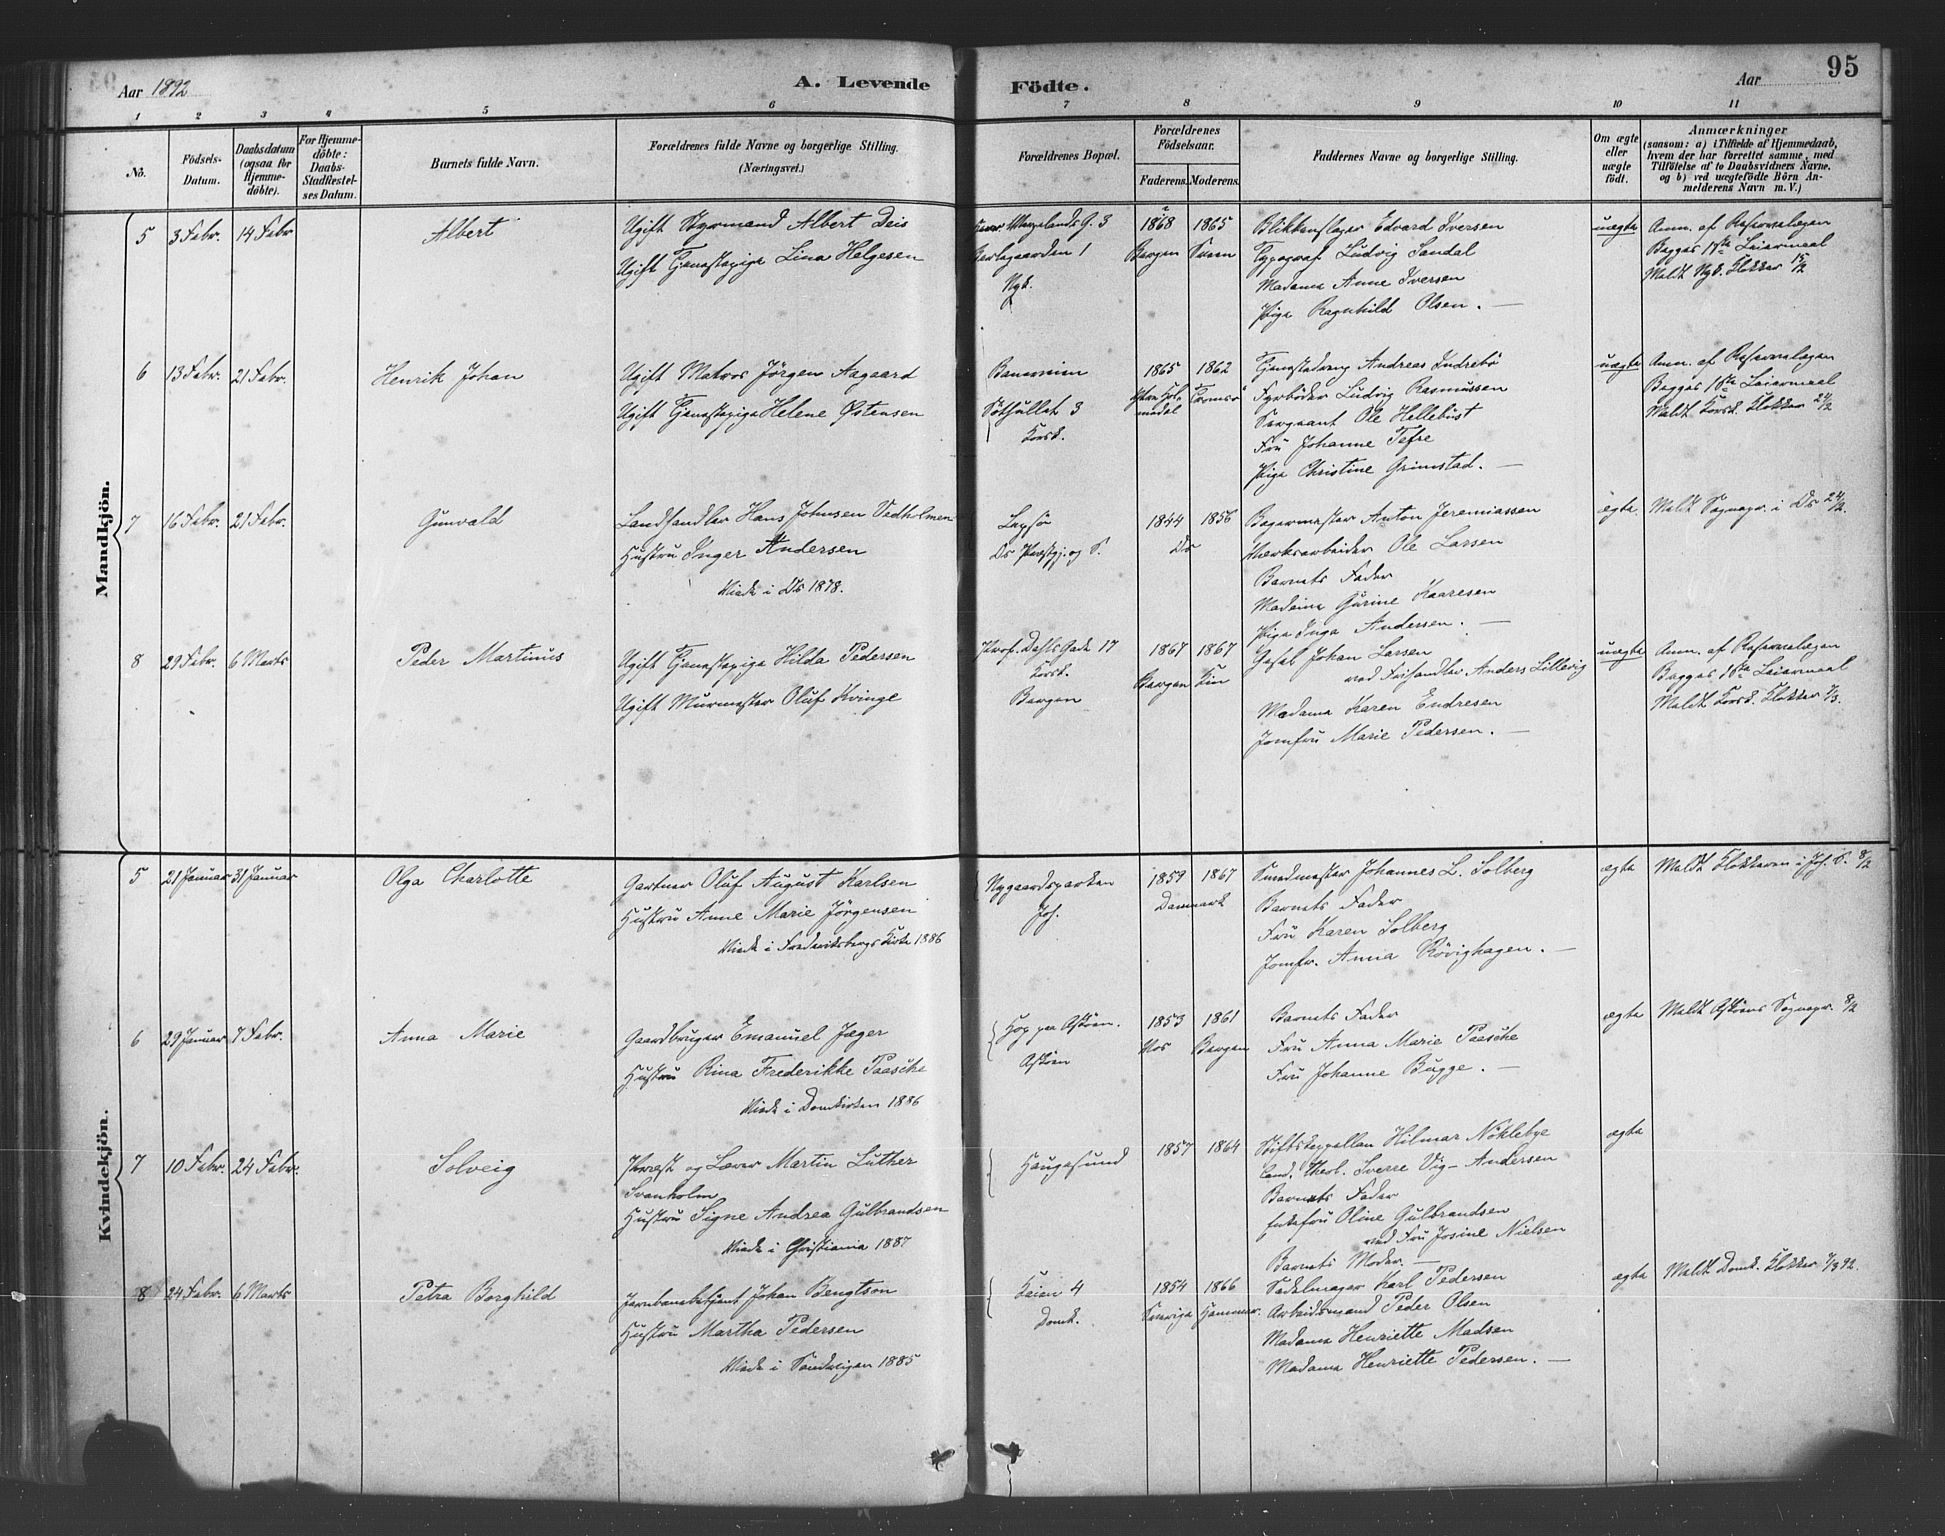 Aar 1892
A. Levende Födte.
Aar 95
1 2 3 4 5 6 7 8 9 10 11
No.
Födsels-
Datum.
Daabsdatum
(ogsaa for
Hjemme-
döbte).
For Hjemme-
döbte:
Daabs-
Stadfæstel-
ses Datum.
Barnets fulde Navn.
Forældrenes fulde Navne og borgerlige Stilling.
(Næringsvei.)
Forældrenes Bopæl.
Forældrenes
Födselsaar.
Faderens. Moderens.
Faddernes Navne og borgerlige Stilling.
Om ægte
eller
uægte
födt.
Anmærkninger
(saasom: a) i Tilfælde af Hjemmedaab,
hvem der har forrettet samme, med
Tilföielse af to Daabsvidners Navne,
og b) ved uægtefödte Börn An-
melderens Navn m. V.)
Mandkjön.
5 3 Febr. 14 Febr
Albert
Ugift Styrmand Albert Deis
Ugift Tjenestepige Lina Helgesen
Wergelands G. 3
1
Nyk.
1868 1865
Bergen
Blikkenslager Edvard Iversen
Typograf Ludvig Sandal
Madame Anne Iversen
Pige Ragnhild Olsen. —
uægte
Anm. af Reservelægen
Bagges 1ste Leiermaal
Meldt Nyk. Klokker 15/2
6 13 Febr. 21 Febr.
Henrik Johan
Ugift Matros Jörgen Aagaard
Ugift Tjenestepige Helene Østensen
3
Korsk.
1865 1862
Tromsö
Tjenestedreng Andreas Indrebö
Fyrböder Ludvig Rasmussen
Sergeant Ole Hellebust
Fru Johanne Tefre
Pige Christine Grimstad. —
uægte
Anm. af Reservelægen
Bagges 1ste Leiermaal
Meldt Korsk. Klokker 24/2
7 16 Febr. 21 Febr.
Gunvald
Landhandler Hans Johnsen Vedholmen
Hustru Inger Andersen
Viede i Ds 1878.
Lepsö
Ds Præstgj. og S.
1844 1856
Ds
Bagermester Anton Jeremiassen
Værksarbeider Ole Larsen
Barnets Fader
Madame Gurine Kaaresen
Pige Inga Andersen. —
ægte.
Meldt Sognepr. i Ds 24/2.
8 29 Febr. 6 Marts
Peder Martinus
Ugift Tjenestepige Hilda Pedersen
Ugift Murmester Oluf Kvinge
Prof. Dahls Gade 17
Korsk.
Bergen
1867 1867
Bergen Kin
Johan Larsen
ved Anders Lillevig
Madame Karen Endresen
Jomfru Marie Pedersen. —
uægte
Anm. af Reservelægen
Bagges 1ste Leiermaal
Meldt Korsk. Klokker 7/3.
Kvindekjön.
5 21 Januar 31 Januar
Olga Charlotte
Gartner Oluf August Karlsen
Hustru Anne Marie Jörgensen
Viede i Frederiksbergs Kirke 1886
Nygaardsparken
Joh.
1859 1867
Danmark
Smedmester Johannes L. Solberg
Barnets Fader
Fru Karen Solberg
Jomfr. Anna Rövighagen. —
ægte
Meldt Klokkeren i Joh. S. 8/2
6 29 Januar 7 Febr.
Anna Marie
Gaardbruger Emanuel Jæger
Hustru Rina Frederikke Paasche
Viede i Domkirken 1886
Hop pr Askøen.
Askøen
1853 1861
Vos Bergen
Barnets Fader
Fru Anna Marie Paasche
Fru Johanne Bugge. —
ægte
Meldt Askøens Sognepr. 8/2
7 10 Febr. 24 Febr.
Solveig
Præst og Lærer Martin Luther
Svanholm
Hustru Signe Andrea Gulbrandsen
Viede i Christiania 1887
Haugesund
1857 1864
Stiftskapellan Hilmar Nöklebye
Cand. theol. Sverre Vig-Andersen
Barnets Fader
Enkefru Oline Gulbrandsen
ved Fru Josine Nielsen
Barnets Moder. —
ægte
8 24 Febr. 6 Marts
Petra Borghild
Jernbanebetjent Johan Bengtson
Hustru Martha Pedersen
Viede i Sandvigen 1885
Kaien 4
Domk.
1854 1866
Sverige Hammer.
Sadelmager Karl Pedersen
Arbeidsmand Peder Olsen
Madame Henriette Madsen
Madame Henriette Pedersen. —
ægte
Meldt Domk. Klokker 7/3 92.